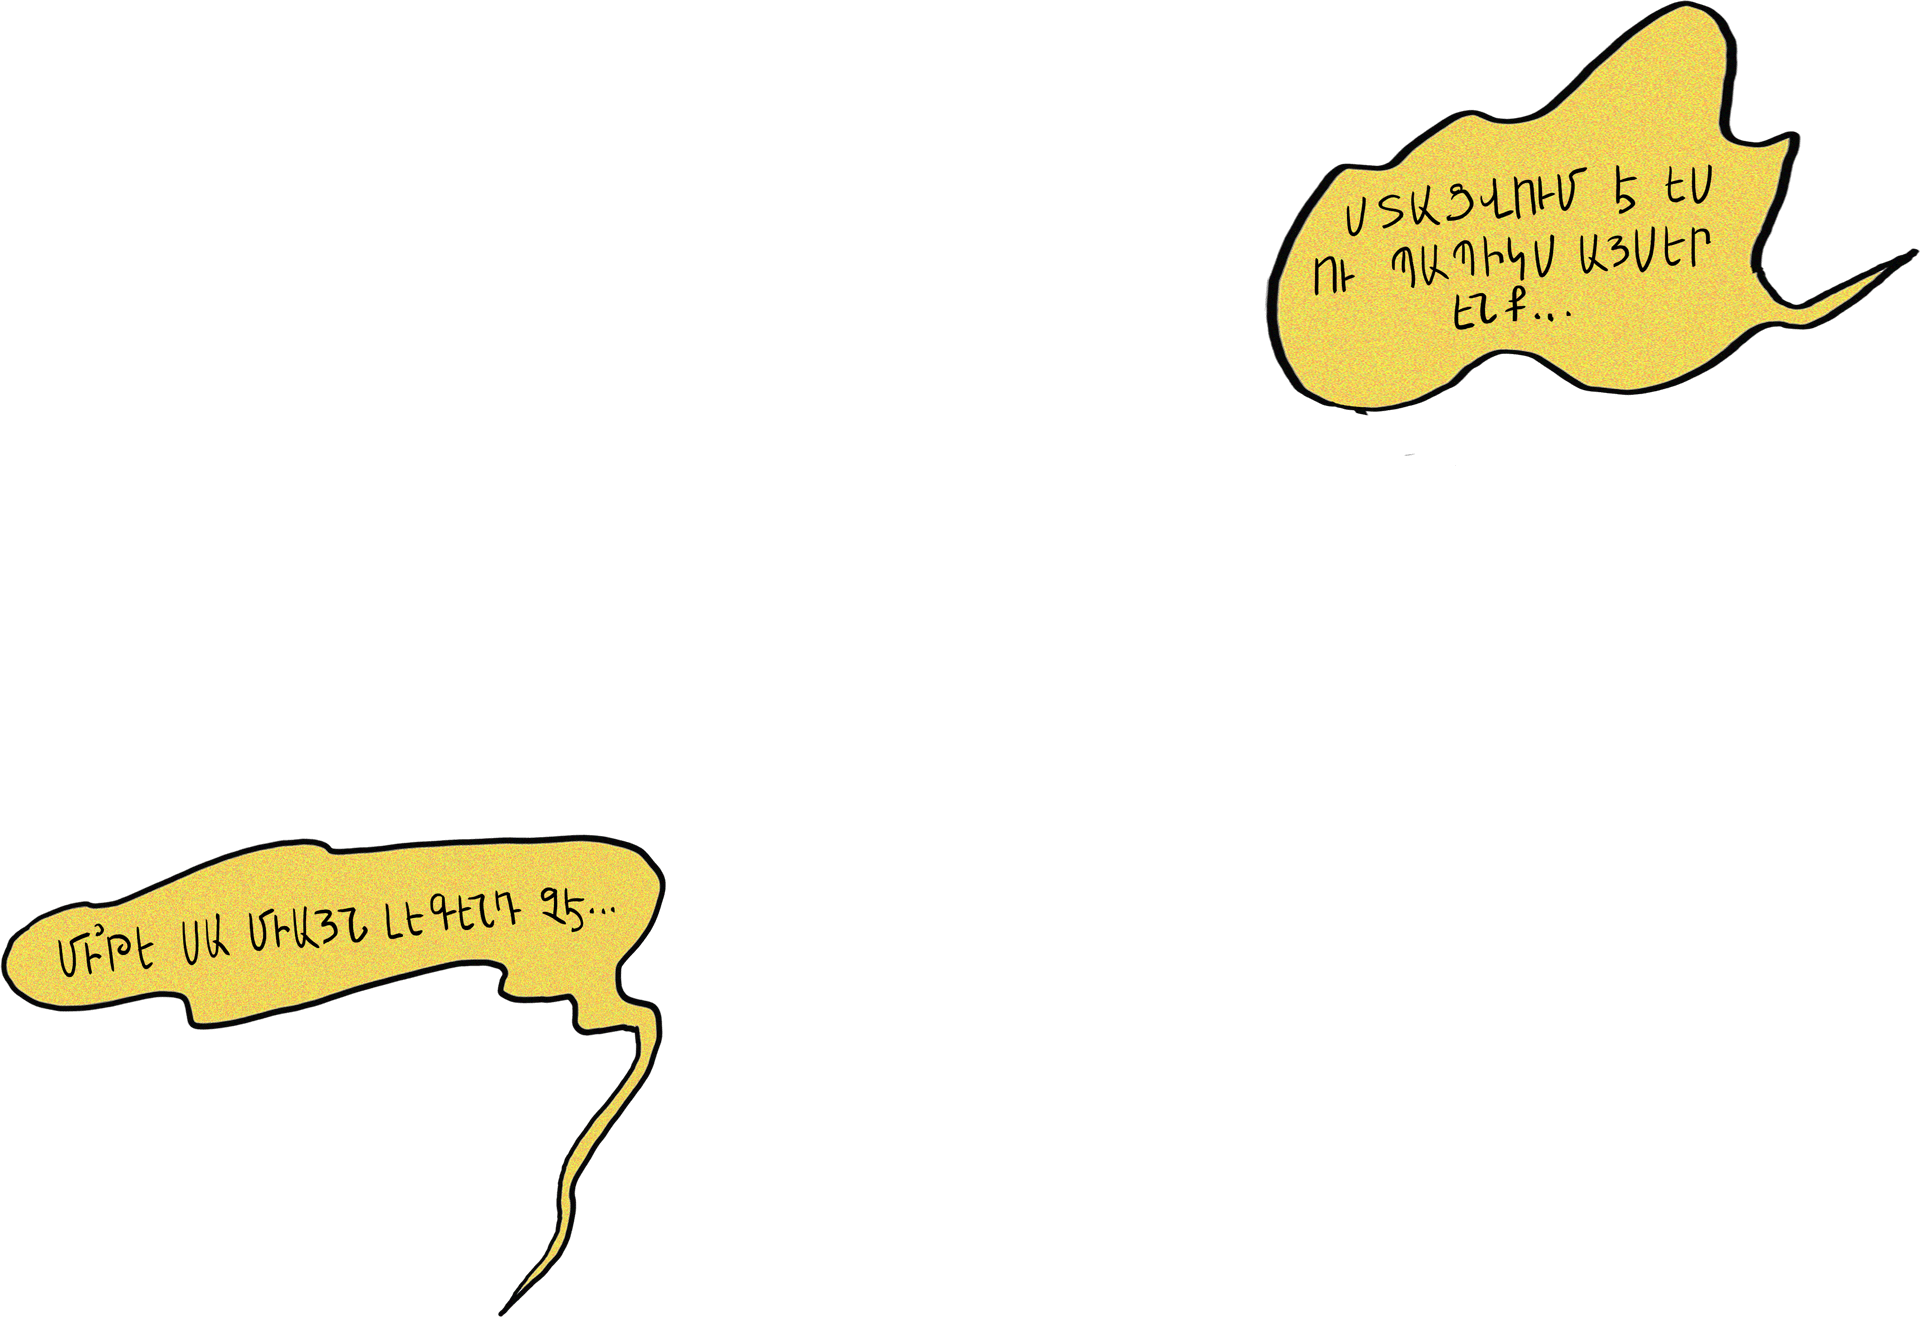 ՍՏԱՑՎՈՒՄ Է ԵՍ
ՈՒ ՊԱՊԻԿՍ ԱՅՍԵՐ
ԵՆՔ...
ՄԻ՞ԹԵ ՍԱ ՄԻԱՅՆ ԼԵԳԵՆԴ ՉԷ...